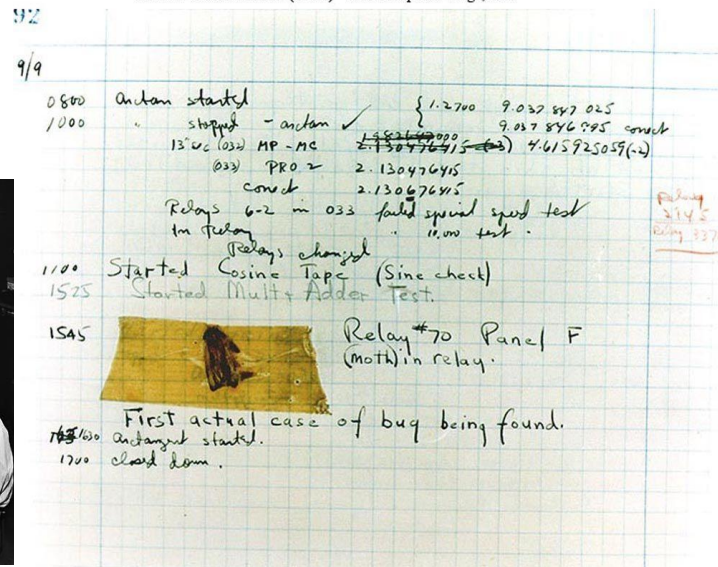 92
9/9
0800 Antan started { 1.2700 9.037 847 025
1000 " stopped - antan ✓ { 9.037 846 995 conect
13"uc (032) MP - MC 2.130476415 (-3) 4.615925059(-2)
(033) PRO 2 2.130476415
conect 2.130676415
Relays 6-2 in 033 failed special speed test
In Relay " 10,000 test .
Relay
Relays changed
1100 Started Cosine Tape (Sine check)
1525 Started Mult + Adder Test.
1545 Relay #70 Panel F
(moth) in relay.
First actual case of bug being found.
1630 antangent started.
1700 closed down.